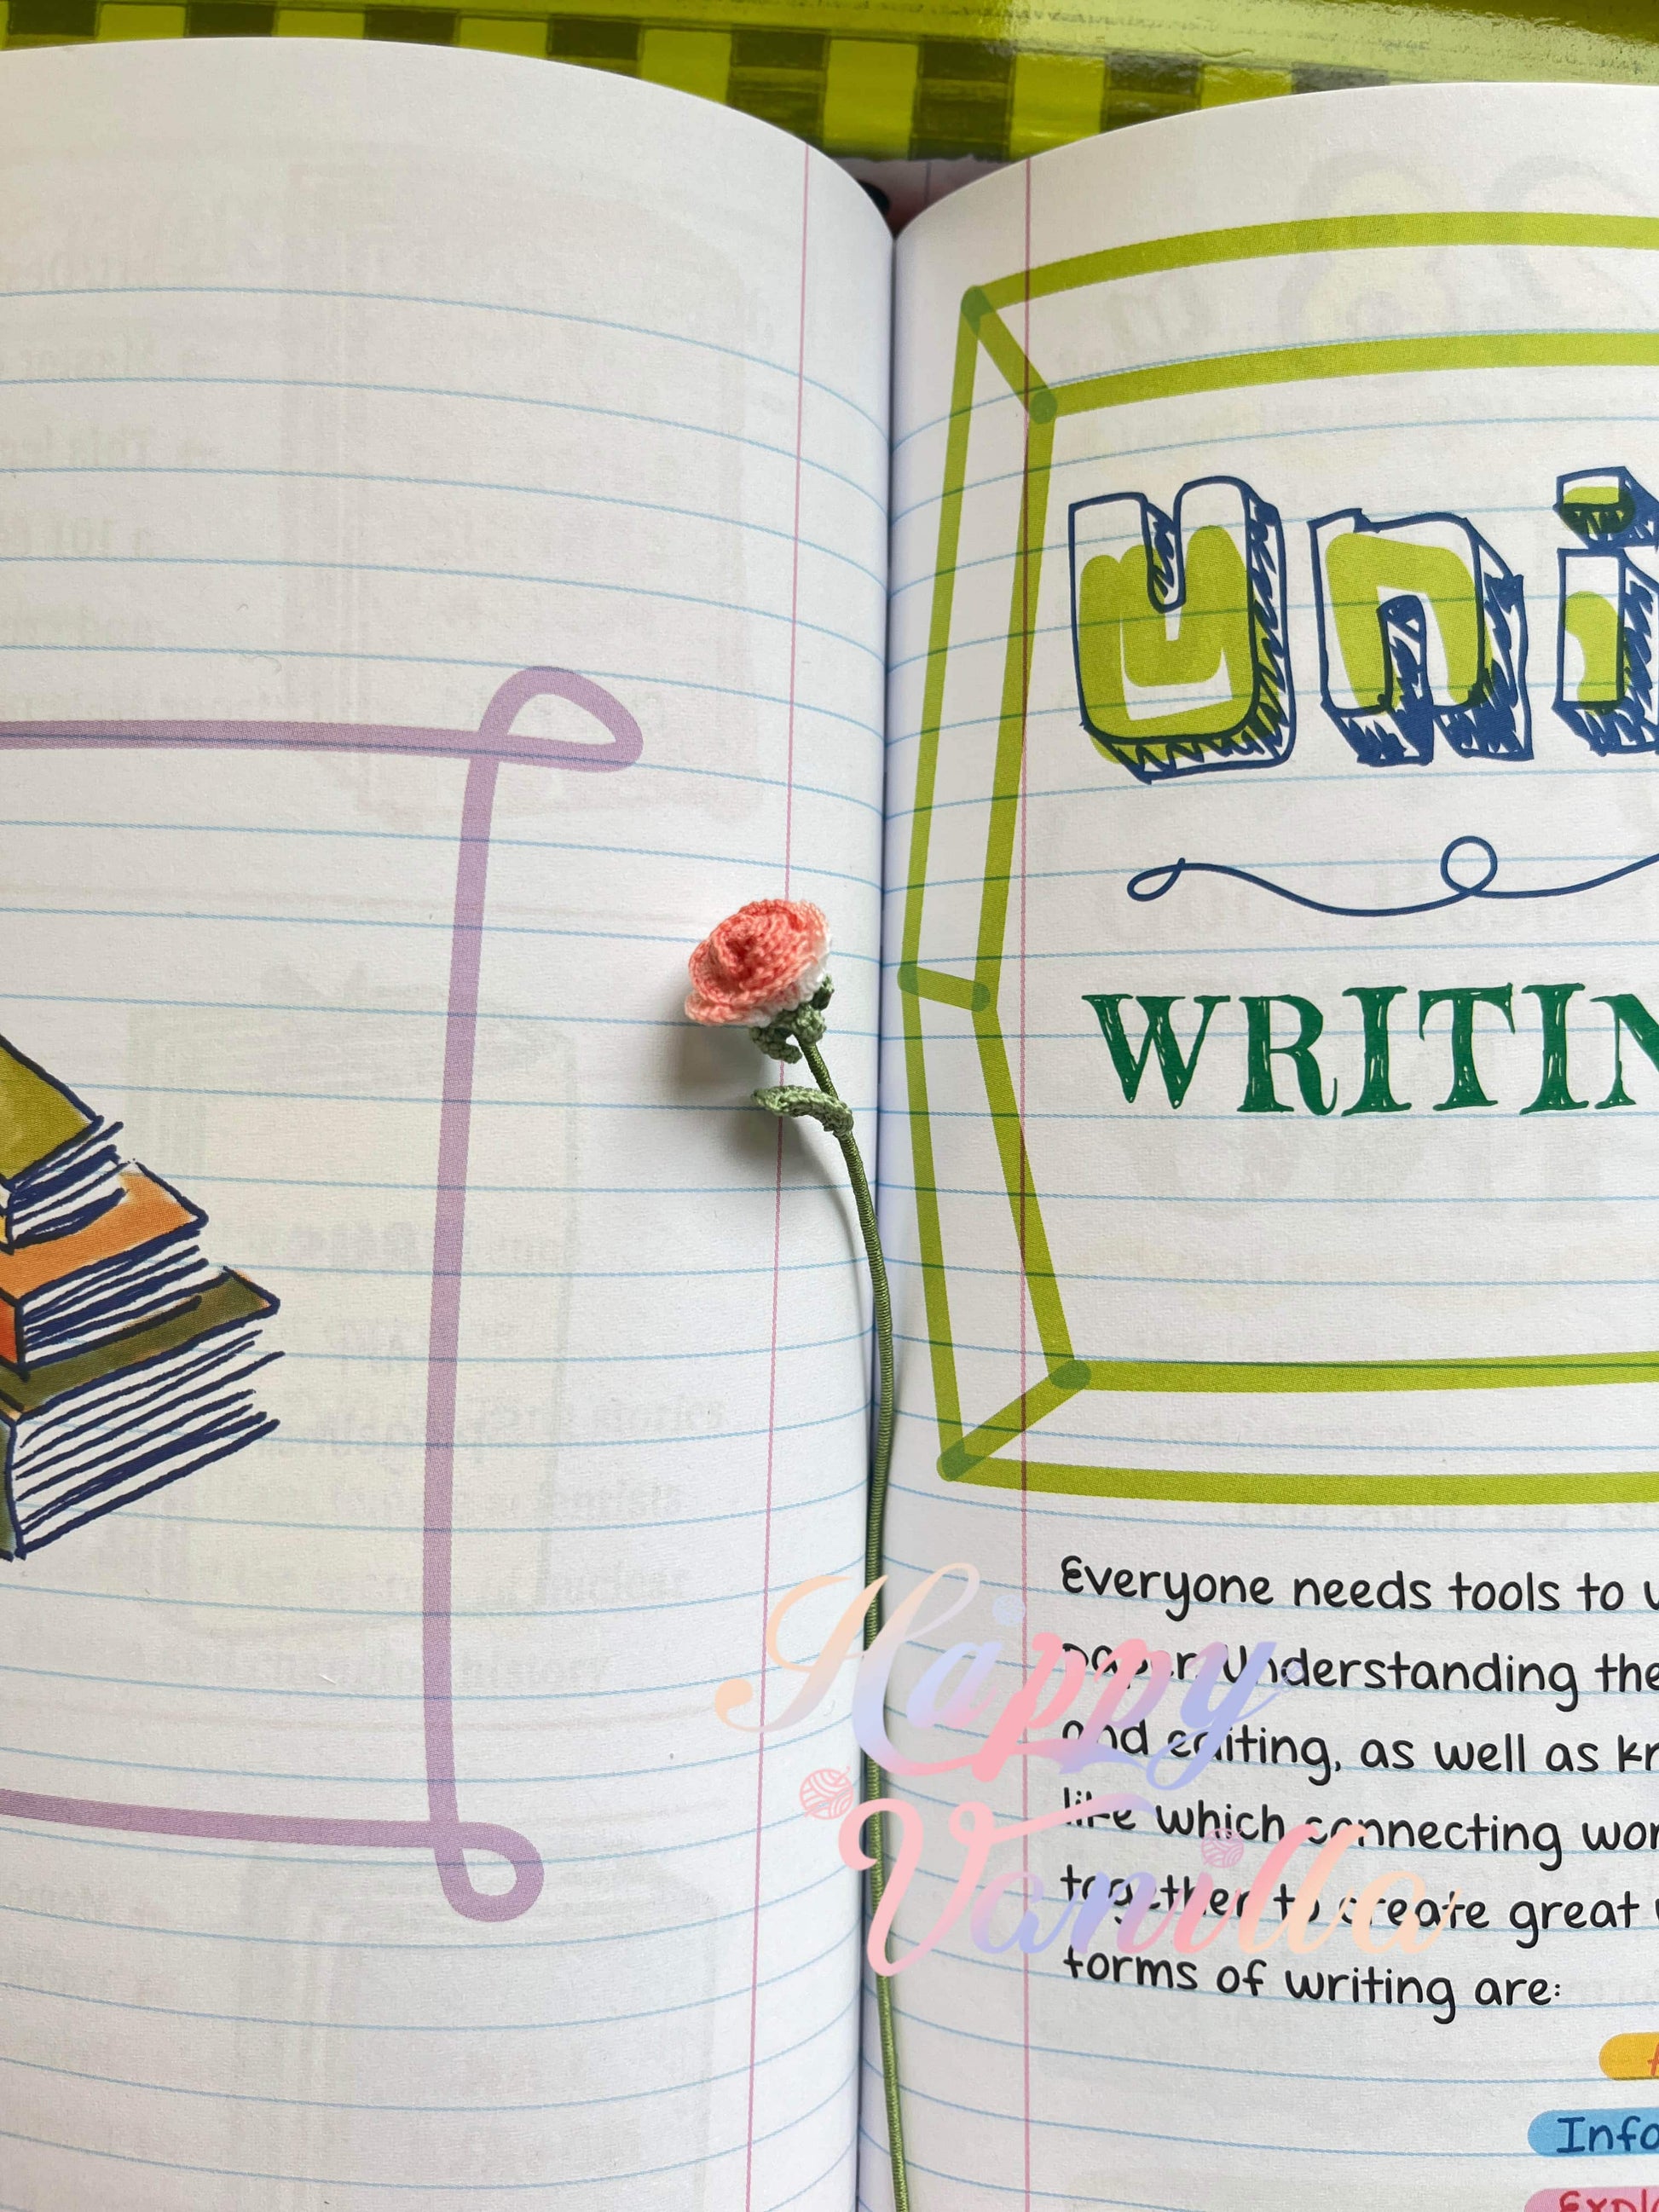 uni
WRITIN
Everyone needs tools to
paper. Understanding the
and editing, as well as kn
like which connecting wor
together to create great
forms of writing are:
Info
Expl
Happy
Vanilla